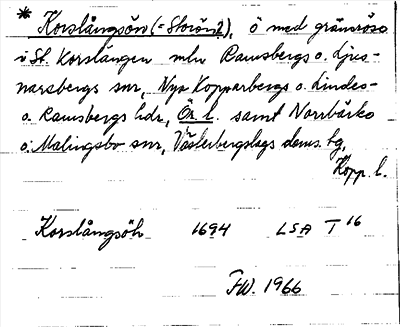 * Korslångsön (= Storön 2), ö med gränsröse
i St. Korslången mln Ramsbergs o. Ljus-
narsbergs snr, Nya Kopparbergs o. Lindes-
o. Ramsbergs hdr, Ör. l. samt Norrbärke
o. Malingsbo snr, Västerbergslags doms. hg,
Kopp. l.
Korslångsöh 1694 LSA T 16
FW. 1966